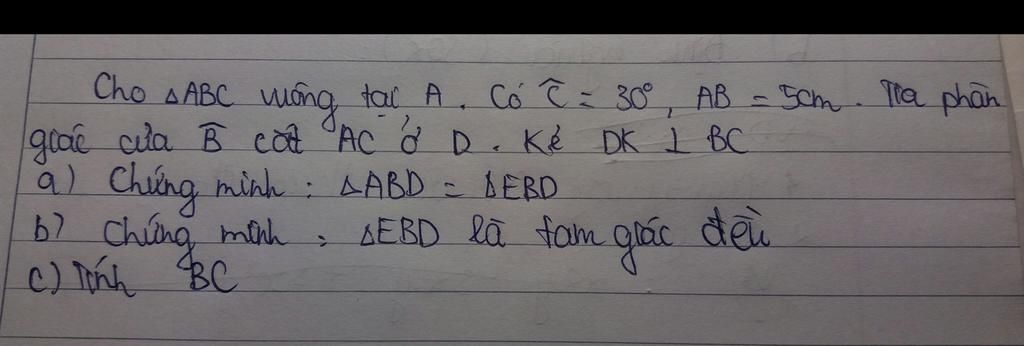 Cho △ABC vuông tại A. Có Ĉ = 30°, AB = 5cm. Tia phân
giác của B̂ cắt AC ở D. Kẻ DK ⊥ BC
a) Chứng minh: △ABD = △EBD
b) Chứng minh: △EBD là tam giác đều
c) Tính BC